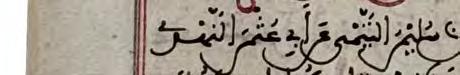 سليمن التيمي عن أبي عثمن النهدي